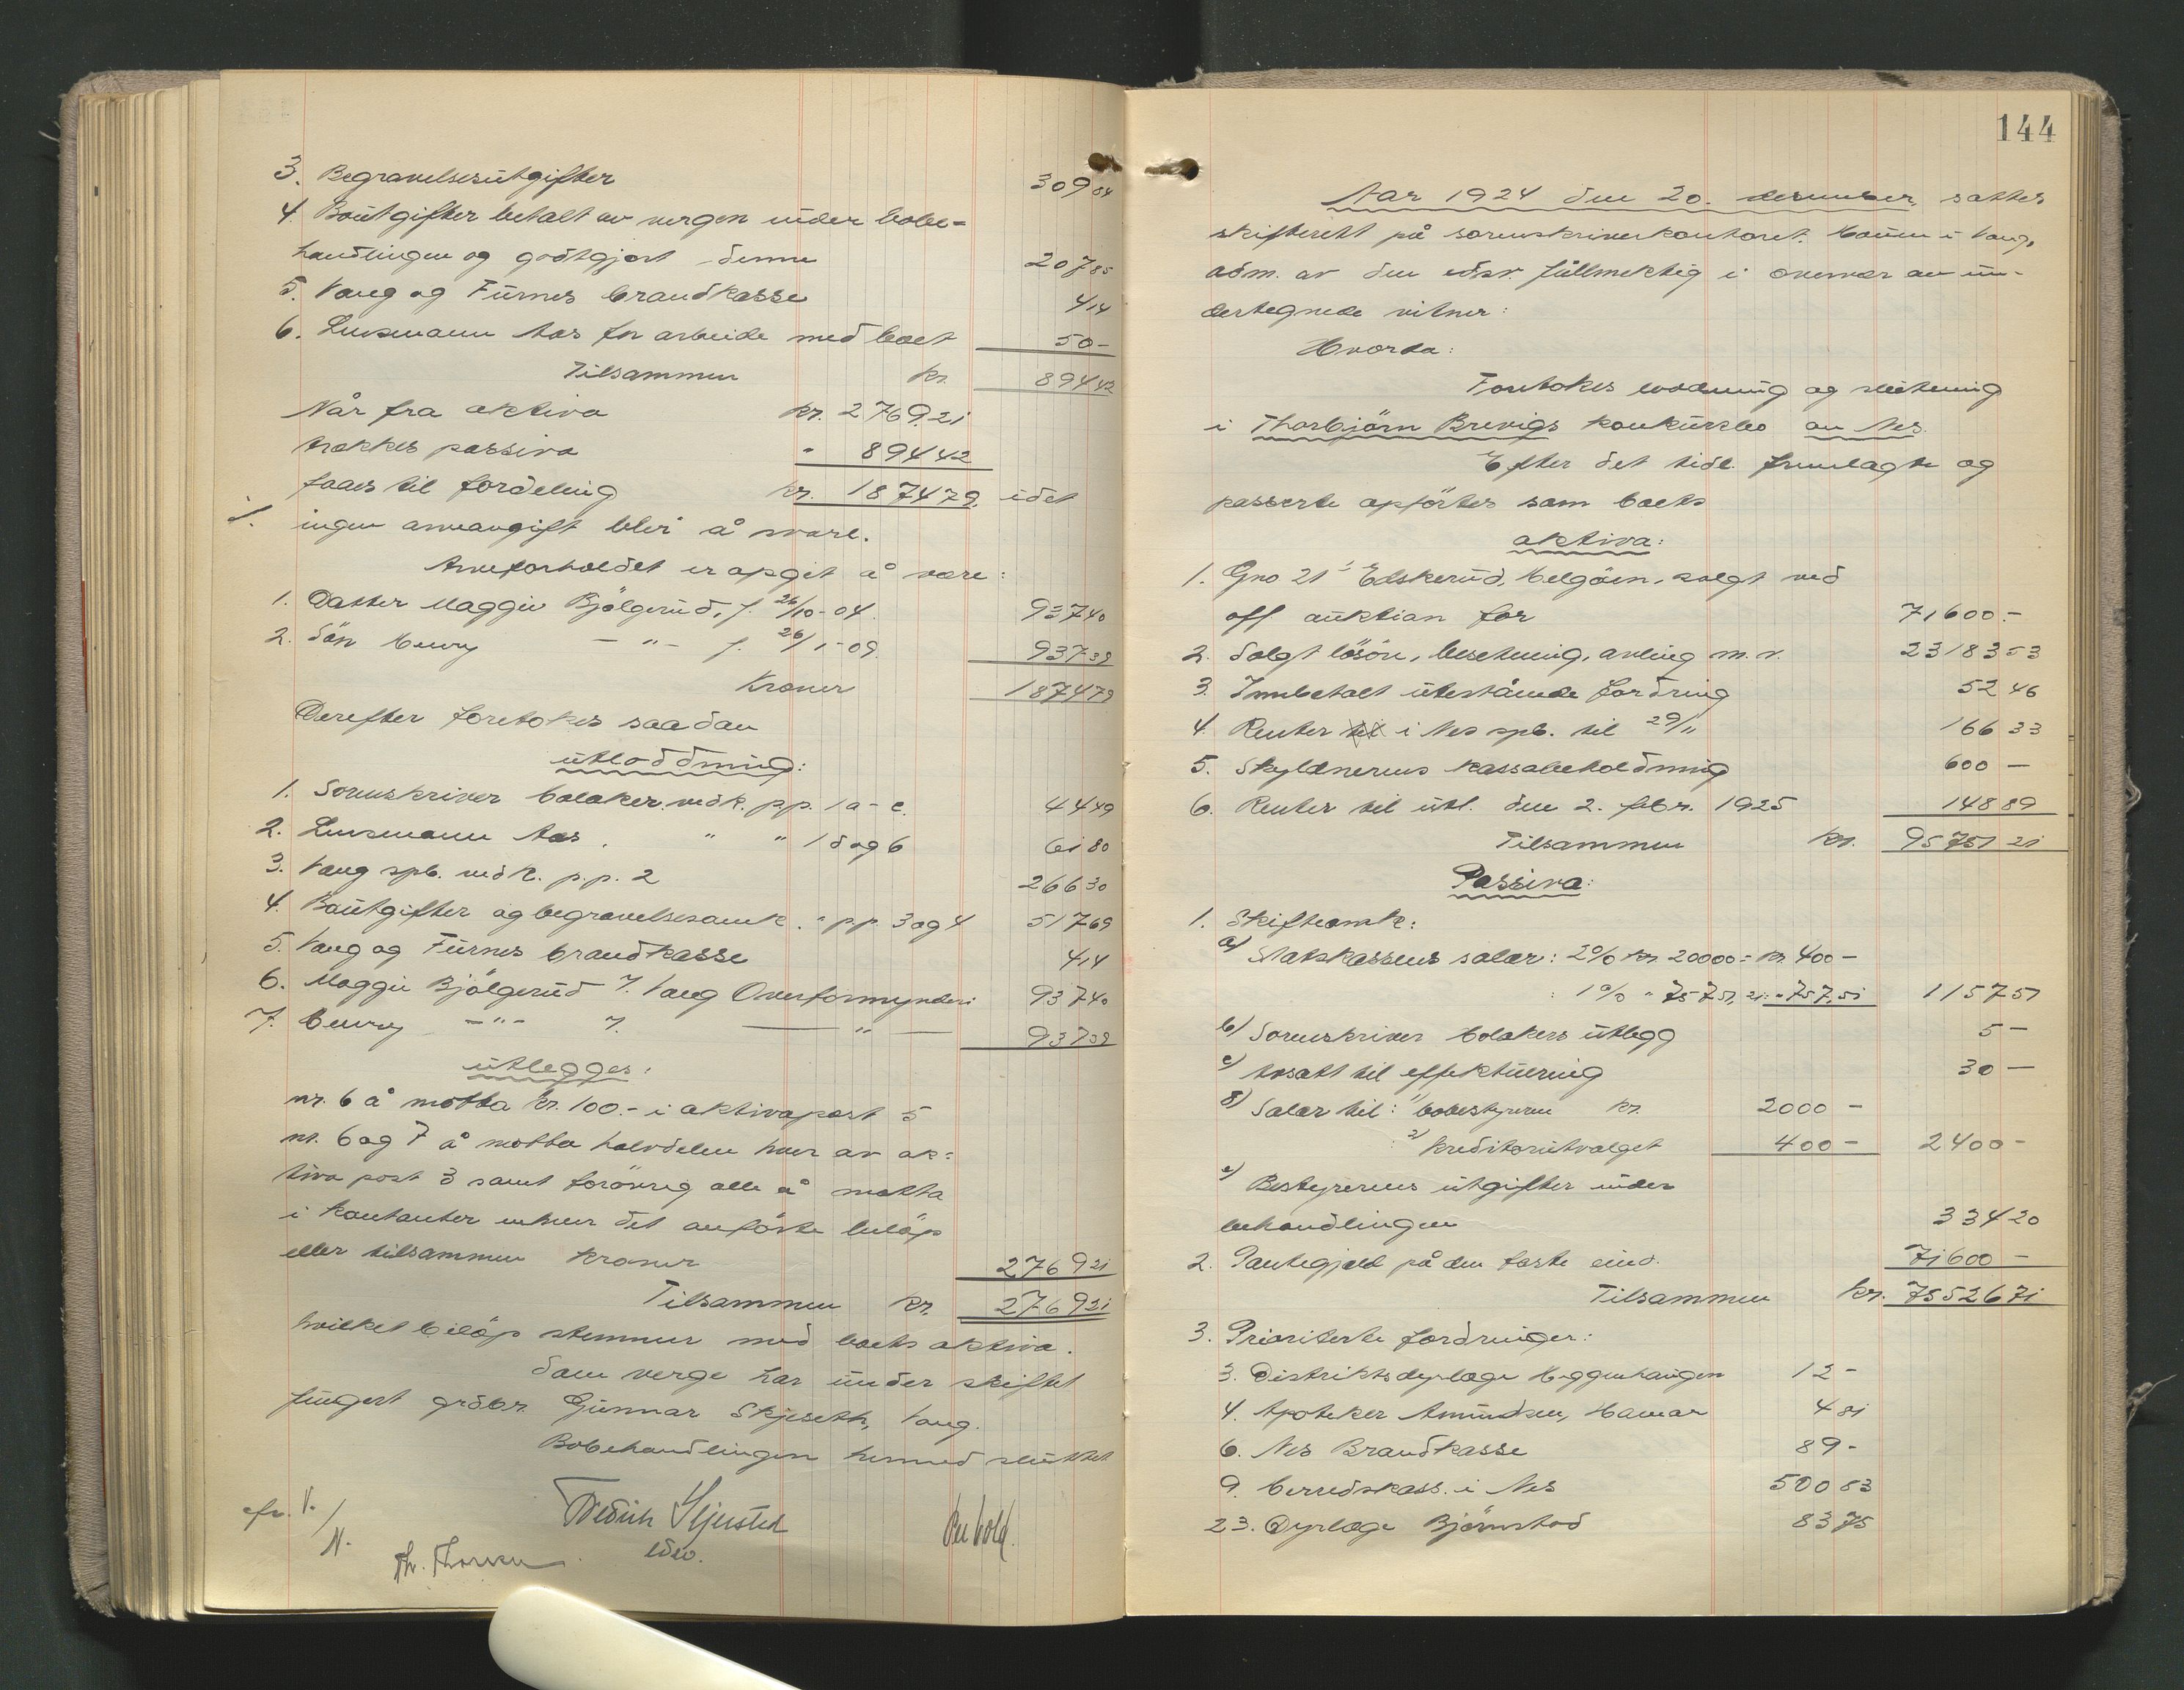 3. Begravelsesutgifter 309 84
4. Boutgifter betalt av vergen under bobe-
handlingen og godtgjort denne 207 85
5. Vang og Furnes brandkasse 4 14
6. Lensmann Aas for arbeide med boet 50 -
Tilsammen kr. 894 42
Når fra aktiva kr. 2769.21
trekkes passiva " 894 42
faaes til fordeling kr. 1874 79, idet
ingen arveavgift blir å svare.
Arveforholdet er opgit å være:
1. Datter Maggie Bjölgerud, f. 26/10-04. 937 40
2. Sön Henry - " - f. 26/1-09. 937 39
Kroner 1874 79
Derefter foretokes saadan
utloddning:
1. Sorenskriver Bolaker vedk. pp. 1 a - c. 44 49
2. Lensmann Aas, " " 1 d og 6 61 80
3. Vang spb. vedk. p.p. 2 266 30
4. Boutgifter og begravelsesomk. " pp. 3 og 4 517 69
5. Vang og Furnes brandkasse 4 14
6. Maggie Bjölgerud 7. Vang Overformynderi 937 40
7. Henry - " - 7. - " - 937 39
utlegges:
nr. 6 å motta kr. 100.- i aktivapost 5
nr. 6 og 7 å motta halvdelen hver av ak-
tiva post 3 samt forövrig alle å motta
i kontanter enhver det anförte belöp
eller tilsammen kroner 2769 21
Tilsammen kr. 2769 21
hvilket belöp stemmer med boets aktiva.
Som verge har under skiftet
fungert grdbr. Gunnar Skjeseth, Vang.
Bobehandlingen hermed sluttet
efr. V.
N.
Th. Thorsen
edsv.
144
Aar 1924 den 20. desember sattes
skifterett på sorenskriverkontoret. Hamar i Vang,
adm. av den edsv. fullmektig i overvær av un-
dertegnede vitner:
Hvorda:
Foretokes utlodning og slutning
i Thorbjörn Brevigs konkursbo av Nes.
Efter det tidl. fremlagte og
passerte opförtes som boets
aktiva:
1. Gno 21 Edskerud, Helgöen, solgt ved
off auktion for 71600.-
2. Solgt lösöre, besetning, avling m.v. 23183 53
3. Innbetalt utestående fordring 52 46
4. Renter i Nes spb. til 29/11 166 33
5. Skyldnerens kassabeholdning 600 -
6. Renter til utl. den 2. febr. 1925 148 89
Tilsammen kr. 95751 21
Passiva:
1. Skifteomk:
a) Statskassens salær: 2% kr. 20000 = kr. 400 -
: 1% " 75751,21 = " 757,51 1157 51
b) Sorenskriver Bolakers utlegg 5 -
c) Avsatt til effektuering 30 -
d) Salær til: 1) bobestyreren kr. 2000 -
2) kreditorutvalget 400 - 2400 -
e) Bestyrerens utgifter under
behandlingen 334 20
2. Pantegjeld på den faste eind. 71600 -
Tilsammen kr. 75526 71
3. Prioriterte fordringer:
3. Distriktsdyrlæge Heggenhaugen 12 -
4. Apoteker Amundsen, Hamar 4 81
6. Nes Brandkasse 89 -
9. Herredskass. i Nes 500 83
23. Dyrlæge Björnstad 83 75